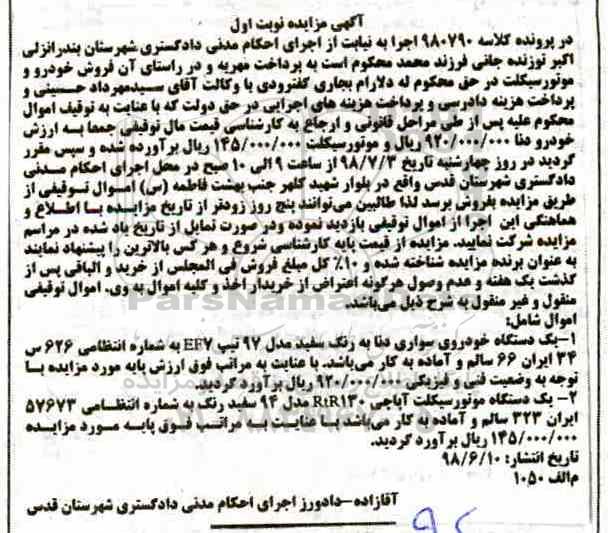 آگهی مزایده نوبت اول
در پرونده کلاسه ۹۸۰۷۹۰ اجرا به نیابت از اجرای احکام مدنی دادگستری شهرستان بندرانزلی
اکبر توزنده جانی فرزند محمد محکوم است به پرداخت مهریه و در راستای آن فروش خودرو و
موتورسیکلت در حق محکوم له دلارام بجاری کفترودی با وکالت آقای سیدمهرداد حسینی و
پرداخت هزینه دادرسی و پرداخت هزینه های اجرایی در حق دولت که با عنایت به توقیف اموال
محکوم علیه پس از طی مراحل قانونی و ارجاع به کارشناسی قیمت مال توقیفی جمعا به ارزش
خودرو دنا ۹۲۰/۰۰۰/۰۰۰ ریال و موتورسیکلت ۱۴۵/۰۰۰/۰۰۰ ریال برآورده شده و سپس مقرر
گردید در روز چهارشنبه تاریخ ۹۸/۷/۳ از ساعت ۹ الی ۱۰ صبح در محل اجرای احکام مدنی
دادگستری شهرستان قدس واقع در بلوار شهید کلهر جنب بهشت فاطمه (س) اموال توقیفی از
طریق مزایده بفروش برسد لذا طالبین می‌توانند پنج روز زودتر از تاریخ مزایده با اطلاع و
هماهنگی این اجرا از اموال توقیفی بازدید نموده ودر صورت تمایل از تاریخ یاد شده در مراسم
مزایده شرکت نمایید. مزایده از قیمت پایه کارشناسی شروع و هر کس بالاترین را پیشنهاد نمایند
به عنوان برنده مزایده شناخته شده و ۱۰٪ کل مبلغ فروش فی المجلس از خرید و الباقی پس از
گذشت یک هفته و عدم وصول هرگونه اعتراض از خریدار اخذ و کلیه اموال به وی. اموال توقیفی
منقول و غیر منقول به شرح ذیل می‌باشد.
اموال شامل:
۱-یک دستگاه خودروی سواری دنا به رنگ سفید مدل ۹۷ تیپ EF7 به شماره انتظامی ۶۲۶ س
۳۴ ایران ۶۶ سالم و آماده به کار می‌باشد. با عنایت به مراتب فوق ارزش پایه مورد مزایده با
توجه به وضعیت فنی و فیزیکی ۹۲۰/۰۰۰/۰۰۰ ریال برآورد گردید.
۲- یک دستگاه موتورسیکلت آپاچی RtR130 مدل ۹۴ سفید رنگ به شماره انتظامی ۵۷۶۷۳
ایران ۳۲۳ سالم و آماده به کار می‌باشد با عنایت به مراتب فوق پایه مورد مزایده
۱۴۵/۰۰۰/۰۰۰ ریال برآورد گردید.
تاریخ انتشار: ۹۸/۶/۱۰
م‌الف ۱۰۵۰
آقازاده-دادورز اجرای احکام مدنی دادگستری شهرستان قدس